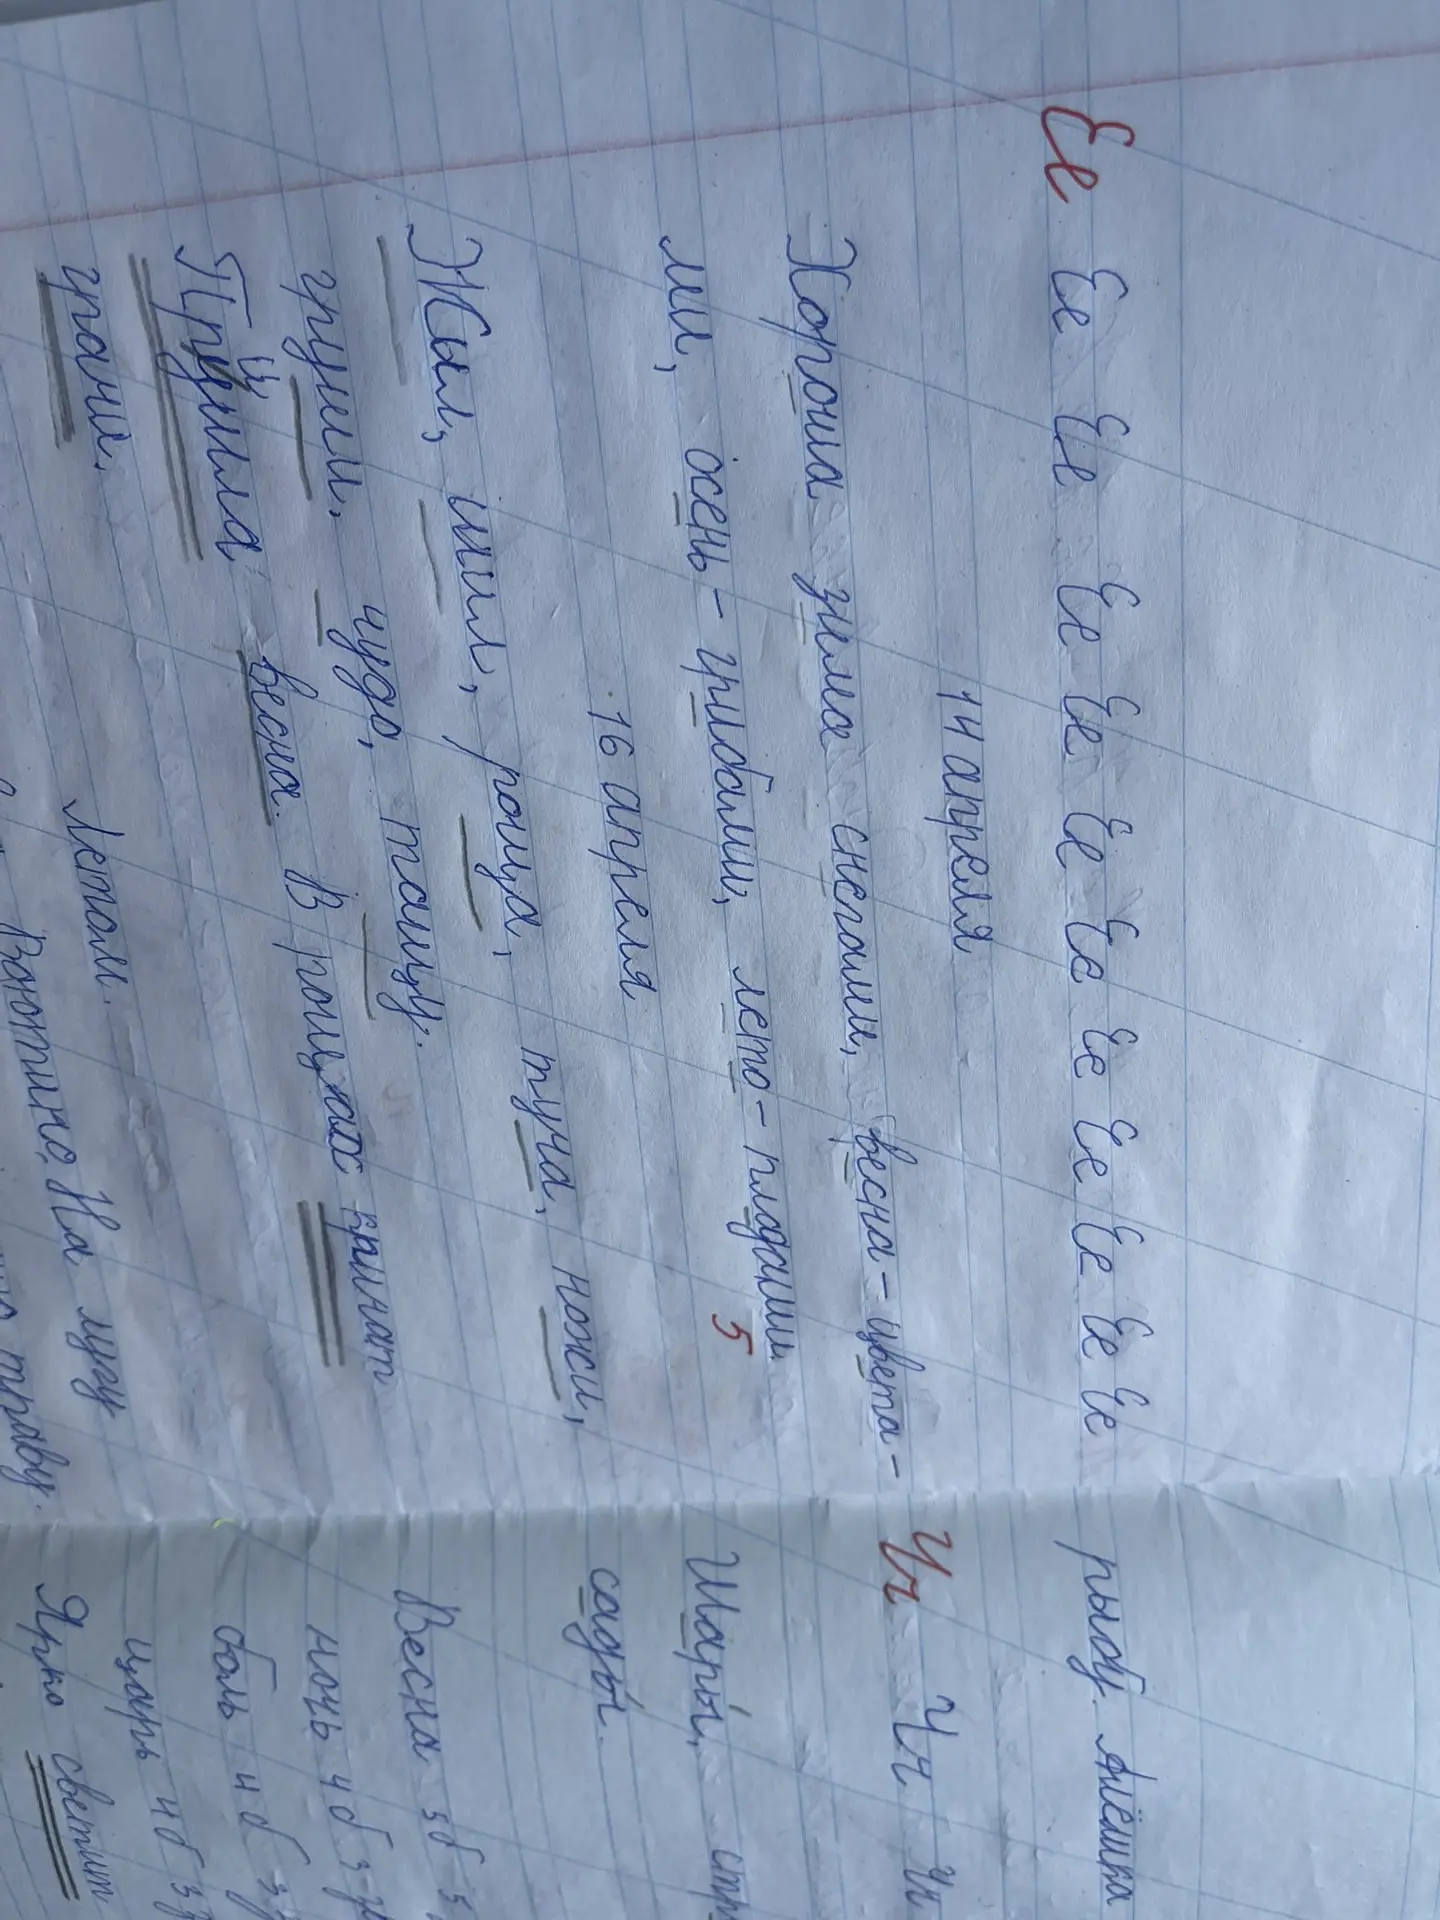 Ее Ее Ее Ее Ее Ее Ее Ее Ее Ее Ее
14 апреля
Хороша зима снегами, весна – цвета-
ми, осень – грибами, лето – плодами.
5
16 апреля
Жил, шил, роща, туча, ножи,
груши, чудо, тащу.
Пришла весна. В рощах кричат
грачи.
Летом.
На лугу
траву.
рыбу. Алёшка
Чч Чч Чч
Шары,
сады.
Весна 5б
ночь 4б
боль 4б
царь 4б
Ярко светит